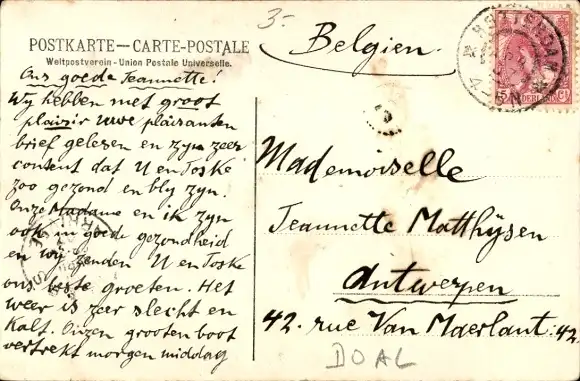 3-
POSTKARTE—CARTE-POSTALE
Weltpostverein - Union Postale Universelle.
Belgien.
Ons goede Jeannette!
Wij hebben met groot
plaizir uwe plaisanten
brief gelezen en zyn zeer
content dat U en Toske
zoo gezond en bly zyn.
Onze Madame en ik zyn
ook in goede gezondheid
en wij zenden U en Toske
ons beste groeten. Het
weer is zeer slecht en
Kalt. Onzen grooten boot
vertrekt morgen middag
Mademoiselle
Jeannette Matthÿsen
Antwerpen
42. rue Van Maerlant :42.
DOAL
ROTTERDAM
4-5N
5 NEDERLAND Ct